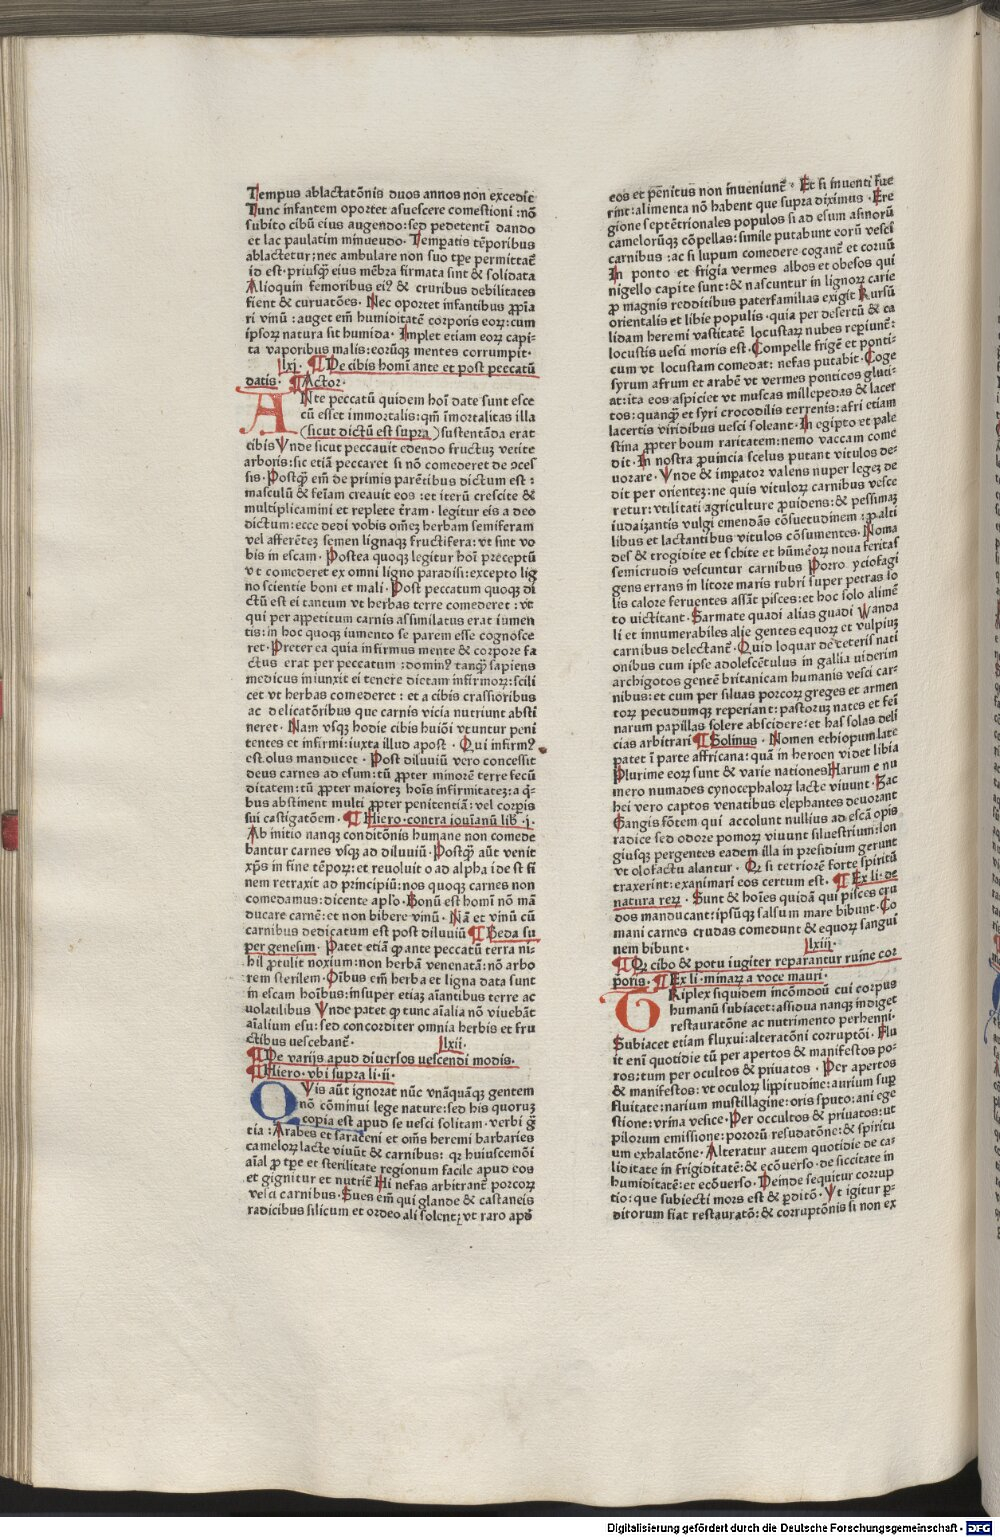 Tempus ablactatōnis duos annos non excedit
Tunc infantem oportet asuescere comestioni : nō
subito cibū eius augendo: sed pedetenti dando
et lac paulatim minuendo · Tempatis tēporibus
ablactetur: nec ambulare non suo tꝑe permittat̄
id est· priusqꝫ eius mēbra firmata sint & solidata
Alioquin femoribus eiꝰ & cruribus debilitates
fient & curuatōes · Nec oportet infantibus ꝓpīa
ri vinū : auget em̄ humiditatē corporis eoꝝ: cum
ipsoꝝ natura sit humida· Implet etiam eoꝝ capi-
ta vaporibus malis: eorūqꝫ mentes corrumpit·
lxj· ¶ De cibis homī ante et post peccatū
datis· ¶ Actor·
ANte peccatū quidem hoī date sunt esce
cū esset immortalis: qm̄ īmortalitas illa
(sicut dictū est supra) sustentāda erat
cibis Vnde sicut peccauit edendo fructuꝫ vetite
arboris: sic etiā peccaret si nō comederet de ↄces
sis· Postqꝫ em̄ de primis parētibus dictum est :
masculū & feīam creauit eos : et iterū crescite &
multiplicamini et replete t̄ram· legitur eis a deo
dictum: ecce dedi vobis om̄eꝫ herbam semiferam
vel afferēteꝫ semen lignaqꝫ fructifera: vt sint vo
bis in escam · Postea quoqꝫ legitur hoī preceptū
vt comederet ex omni ligno paradisi: excepto lig
no scientie boni et mali · Post peccatum quoqꝫ di
ctū est ei tantum vt herbas terre comederet : vt
qui per appetitum carnis assimilatus erat iumen
tis: in hoc quoqꝫ iumento se parem esse cognosce
ret· Preter ea quia infirmus mente & corpore fa
ctus erat per peccatum : dominꝰ tanqꝫ sapiens
medicus iniunxit ei tenere dietam infirmoꝝ: scili
cet vt herbas comederet : et a cibis crassioribus
ac delicatōribus que carnis vicia nutriunt absti
neret · Nam vsqꝫ hodie cibis huiōi vtuntur peni
tentes et infirmi: iuxta illud apost · Qui infirmꝰ
est olus manducet · Post diluuiū vero concessit
deus carnes ad esum: tū ꝓpter minorē terre fecū
ditatem: tū ꝓpter maioreꝫ hoīs infirmitateꝫ: a q̄-
bus abstinent multi ꝓpter penitentiā: vel corpis
sui castigatōem · ¶ Hiero· contra iouianū lib̄ · j·
Ab initio nanqꝫ conditōnis humane non comede
bantur carnes vsqꝫ ad diluuiū · Postqꝫ aūt venit
xp̄s in fine tēpoꝝ: et reuoluit o ad alpha id est fi
nem retraxit ad principiū: nos quoqꝫ carnes non
comedamus: dicente aplo· Bonū est homī nō mā
ducare carnē: et non bibere vinū · Nā et vinū cū
carnibus dedicatum est post diluuiū ¶ Beda su
per genesim · Patet etiā qꝫ ante peccatū terra ni-
hil ꝓtulit noxium: non herbā venenatā: nō arbo
rem sterilem · Oībus em̄ herba et ligna data sunt
in escam hoībus: insuper etiaꝫ aīantibus terre ac
volatilibus Vnde patet qꝫ tunc aīalia nō viuebāt
aīalium esu: sed concorditer omnia herbis et fru
ctibus vescebant̄· lxii·
¶ De varijs apud diuersos vescendi modis·
¶ Hiero· vbi supra li· ii·
QVis aūt ignorat nūc vnāquāqꝫ gentem
nō cōmmui lege nature: sed his quoruꝫ
copia est apud se vesci solitam · verbi gr̄
tia : Arabes et saraceni et om̄s heremi barbaries
cameloꝝ lacte viuūt & carnibus: qꝫ huiuscemōi
aīal ꝓ tꝑe et sterilitate regionum facile apud eos
et gignitur et nutrit̄ Hi nefas arbitrant̄ porcoꝝ
vesci carnibus · Sues em̄ qui glande & castaneis
radicibus silicum et ordeo ali solent: vt raro apd̄
eos et penitus non inueniunt̄ · Et si inuenti fue
rint: alimenta nō habent que supra diximus · Ere
gione septētrionales populos si ad esum asinorū
camelorūqꝫ cōpellas: simile putabunt eorū vesci
carnibus : ac si lupum comedere cogant̄ et coruū
In ponto et frigia vermes albos et obesos qui
nigello capite sunt: & nascuntur in lignoꝝ carie
ꝓ magnis redditibus paterfamilias exigit Rursū
orientalis et libie populis · quia per desertū & ca
lidam heremi vastitatē locustaꝝ nubes reꝑiunt̄:
locustis vesci moris est · Compelle frigē et ponti-
cum vt locustam comedat: nefas putabit · Coge
syrum afrum et arabē vt vermes ponticos gluti-
at: ita eos aspiciet vt muscas millepedas & lacer
tos: quanqꝫ et syri crocodilis terrenis: afri etiam
lacertis viridibus vesci soleant· In egipto et pale
stina ꝓpter boum raritatem: nemo vaccam come
dit · In nostra ꝓuincia scelus putant vitulos de-
uorare · Vnde & imꝑator valens nuper legeꝫ de
dit per orienteꝫ: ne quis vituloꝝ carnibus vesce
retur: vtilitati agriculture ꝓuidens: & pessimaꝫ
iudaizantis vulgi emendās cōsuetudinem : ꝓ alti
libus et lactantibus vitulos cōsumentes· Noma
des & trogidite et schite et hūmeoꝝ noua feritas
semicrudis vescuntur carnibus Porro yciofagi
gens errans in litore maris rubri super petras so
lis calore feruentes assāt pisces: et hoc solo alimē
to victitant · Sarmate quadi alias guadi Wanda
li et innumerabiles alie gentes equoꝝ et vulpiuꝫ
carnibus delectant̄ · Quid loquar de ceteris nati
onibus cum ipse adolescētulus in gallia viderim
archigotos gentē britanicam humanis vesci car-
nibus: et cum per siluas porcoꝝ greges et armen
toꝝ pecudumqꝫ reperiant: pastoruꝫ nates et feī
narum papillas solere abscidere: et has solas deli
cias arbitrari ¶ Solinus · Nomen ethiopum late
patet ī parte affricana: quā in heroen videt libia
Plurime eoꝝ sunt & varie nationes Harum e nu
mero numades cynocephaloꝝ lacte viuunt · Sac
hei vero captos venatibus elephantes deuorant
Gangis fōtem qui accolunt nullius ad escā opis
radice sed odore pomoꝝ viuunt siluestrium: lon
giusqꝫ pergentes eadem illa in presidium gerunt
vt olofactu alantur · Qꝫ si tetriorē forte spiritū
traxerint: exanimari eos certum est · ¶ Ex li· de
natura reꝝ · Sunt & hoīes quidā qui pisces cru
dos manducant: ipsūqꝫ salsum mare bibunt · Co
mani carnes crudas comedunt & equoꝝ sangui
nem bibunt · lxiij·
¶ Qꝫ cibo & potu iugiter reparantur ruine cor
poris· ¶ Ex li· minaꝝ a voce mauri·
TRiplex siquidem incōmdoū cui corpus
humanū subiacet: assidua nanqꝫ indiget
restauratōne ac nutrimento perhenni·
Subiacet etiam fluxui: alteratōni corruptōi · Flu
it eni quotidie tū per apertos & manifestos po-
ros: tum per occultos & priuatos · Per apertos
& manifestos: vt oculoꝝ lippitudine: aurium suꝑ
fluitate: narium mustillagine: oris sputo: ani ege
stione: vrina vesice · Per occultos & priuatos: vt
pilorum emissione: pororū resudatōne: & spiritu
um exhalatōne · Alteratur autem quotidie de ca-
liditate in frigiditatē: & ecōuerso · de siccitate in
humiditatē: et ecōuerso · Deinde sequitur corrup
tio: que subiecti mors est & ꝑditō · Vt igitur ꝑ-
ditorum fiat restauratō: & corruptōnis si non ex
Digitalisierung gefördert durch die Deutsche Forschungsgemeinschaft - DFG